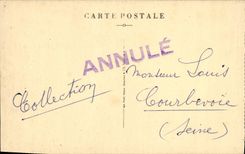 CARTE POSTALE
ANNULÉ
Collection
Monsieur Louis
Courbevoie
(Seine)